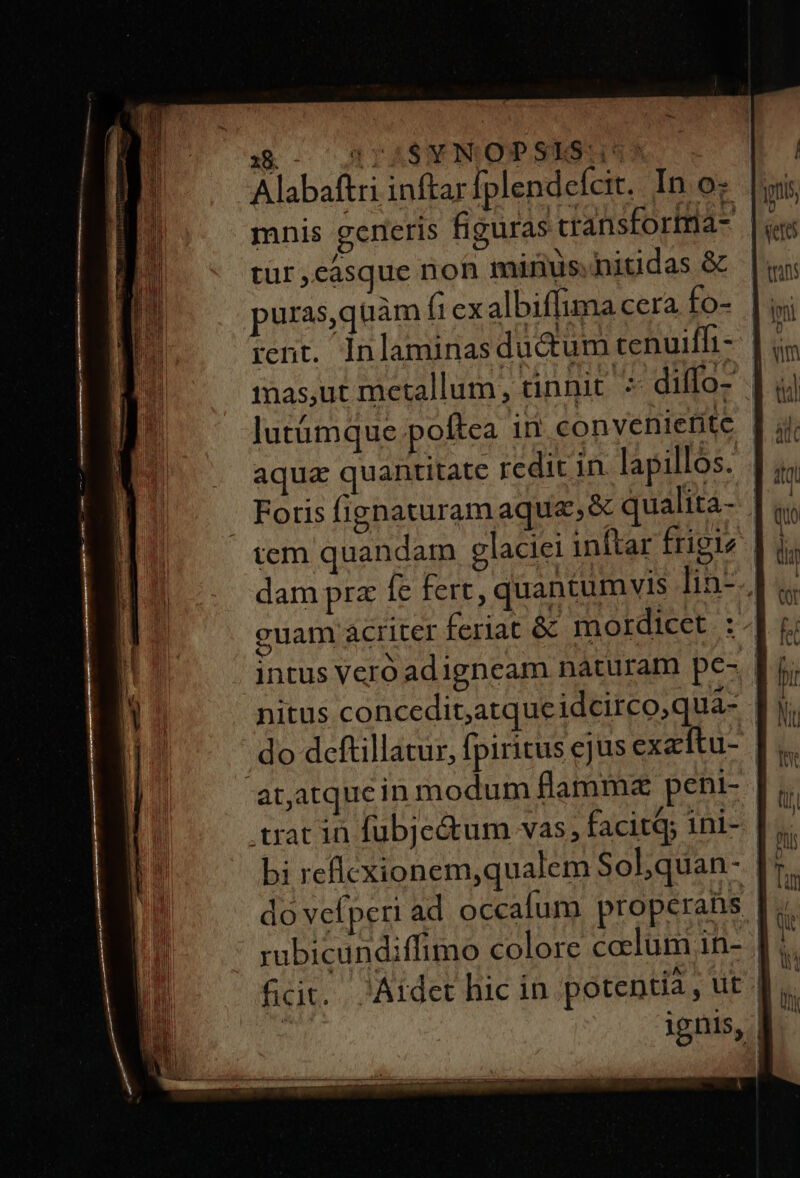 28 SYNOPSIS
Alabaſtri inſtar ſplendeſcit. In o-
mnis generis figuras transforma-
tur, eásque non minùs nitidas &
puras, quàm ſi ex albiſſima cera fo-
rent. In laminas ductum tenuiſſi-
mas, ut metallum, tinnit : diſſo-
lutúmque poſtea in conveniente
aquæ quantitate redit in lapillos.
Foris ſignaturam aquæ, & qualita-
tem quandam glaciei inſtar frigi-
dam præ ſe fert, quantumvis lin-
guam acriter feriat & mordicet :
intus verò ad igneam naturam pe-
nitus concedit, atque idcirco, quá-
do deſtillatur, ſpiritus ejus exæſtu-
at, atque in modum flammæ peni-
trat in ſubjectum vas, facitq́; ini-
bi reflexionem, qualem Sol, quan-
do veſperi ad occaſum properans
rubicundiſſimo colore cœlum in-
ficit. Ardet hic in potentiâ, ut
ignis,